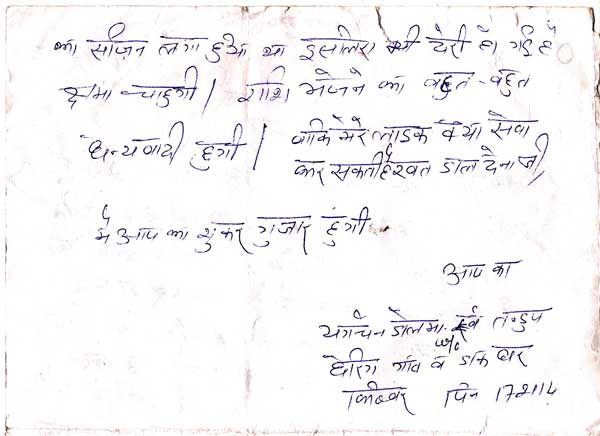 का सीज़न लगा हुआ था इसलिए भी देरी हो गई है
क्षमा चाहुगी। राशि भेजने का बहुत-बहुत
धन्यवादी हुगी। बाकि मेरे लाइक क्या सेवा
कर सकती है खत डाल देना जी,
मैं आप का शुकर गुजार हुंगी
आप का
डोलमा
w/o
गांव व डाक घर
किब्बर पिन 172114